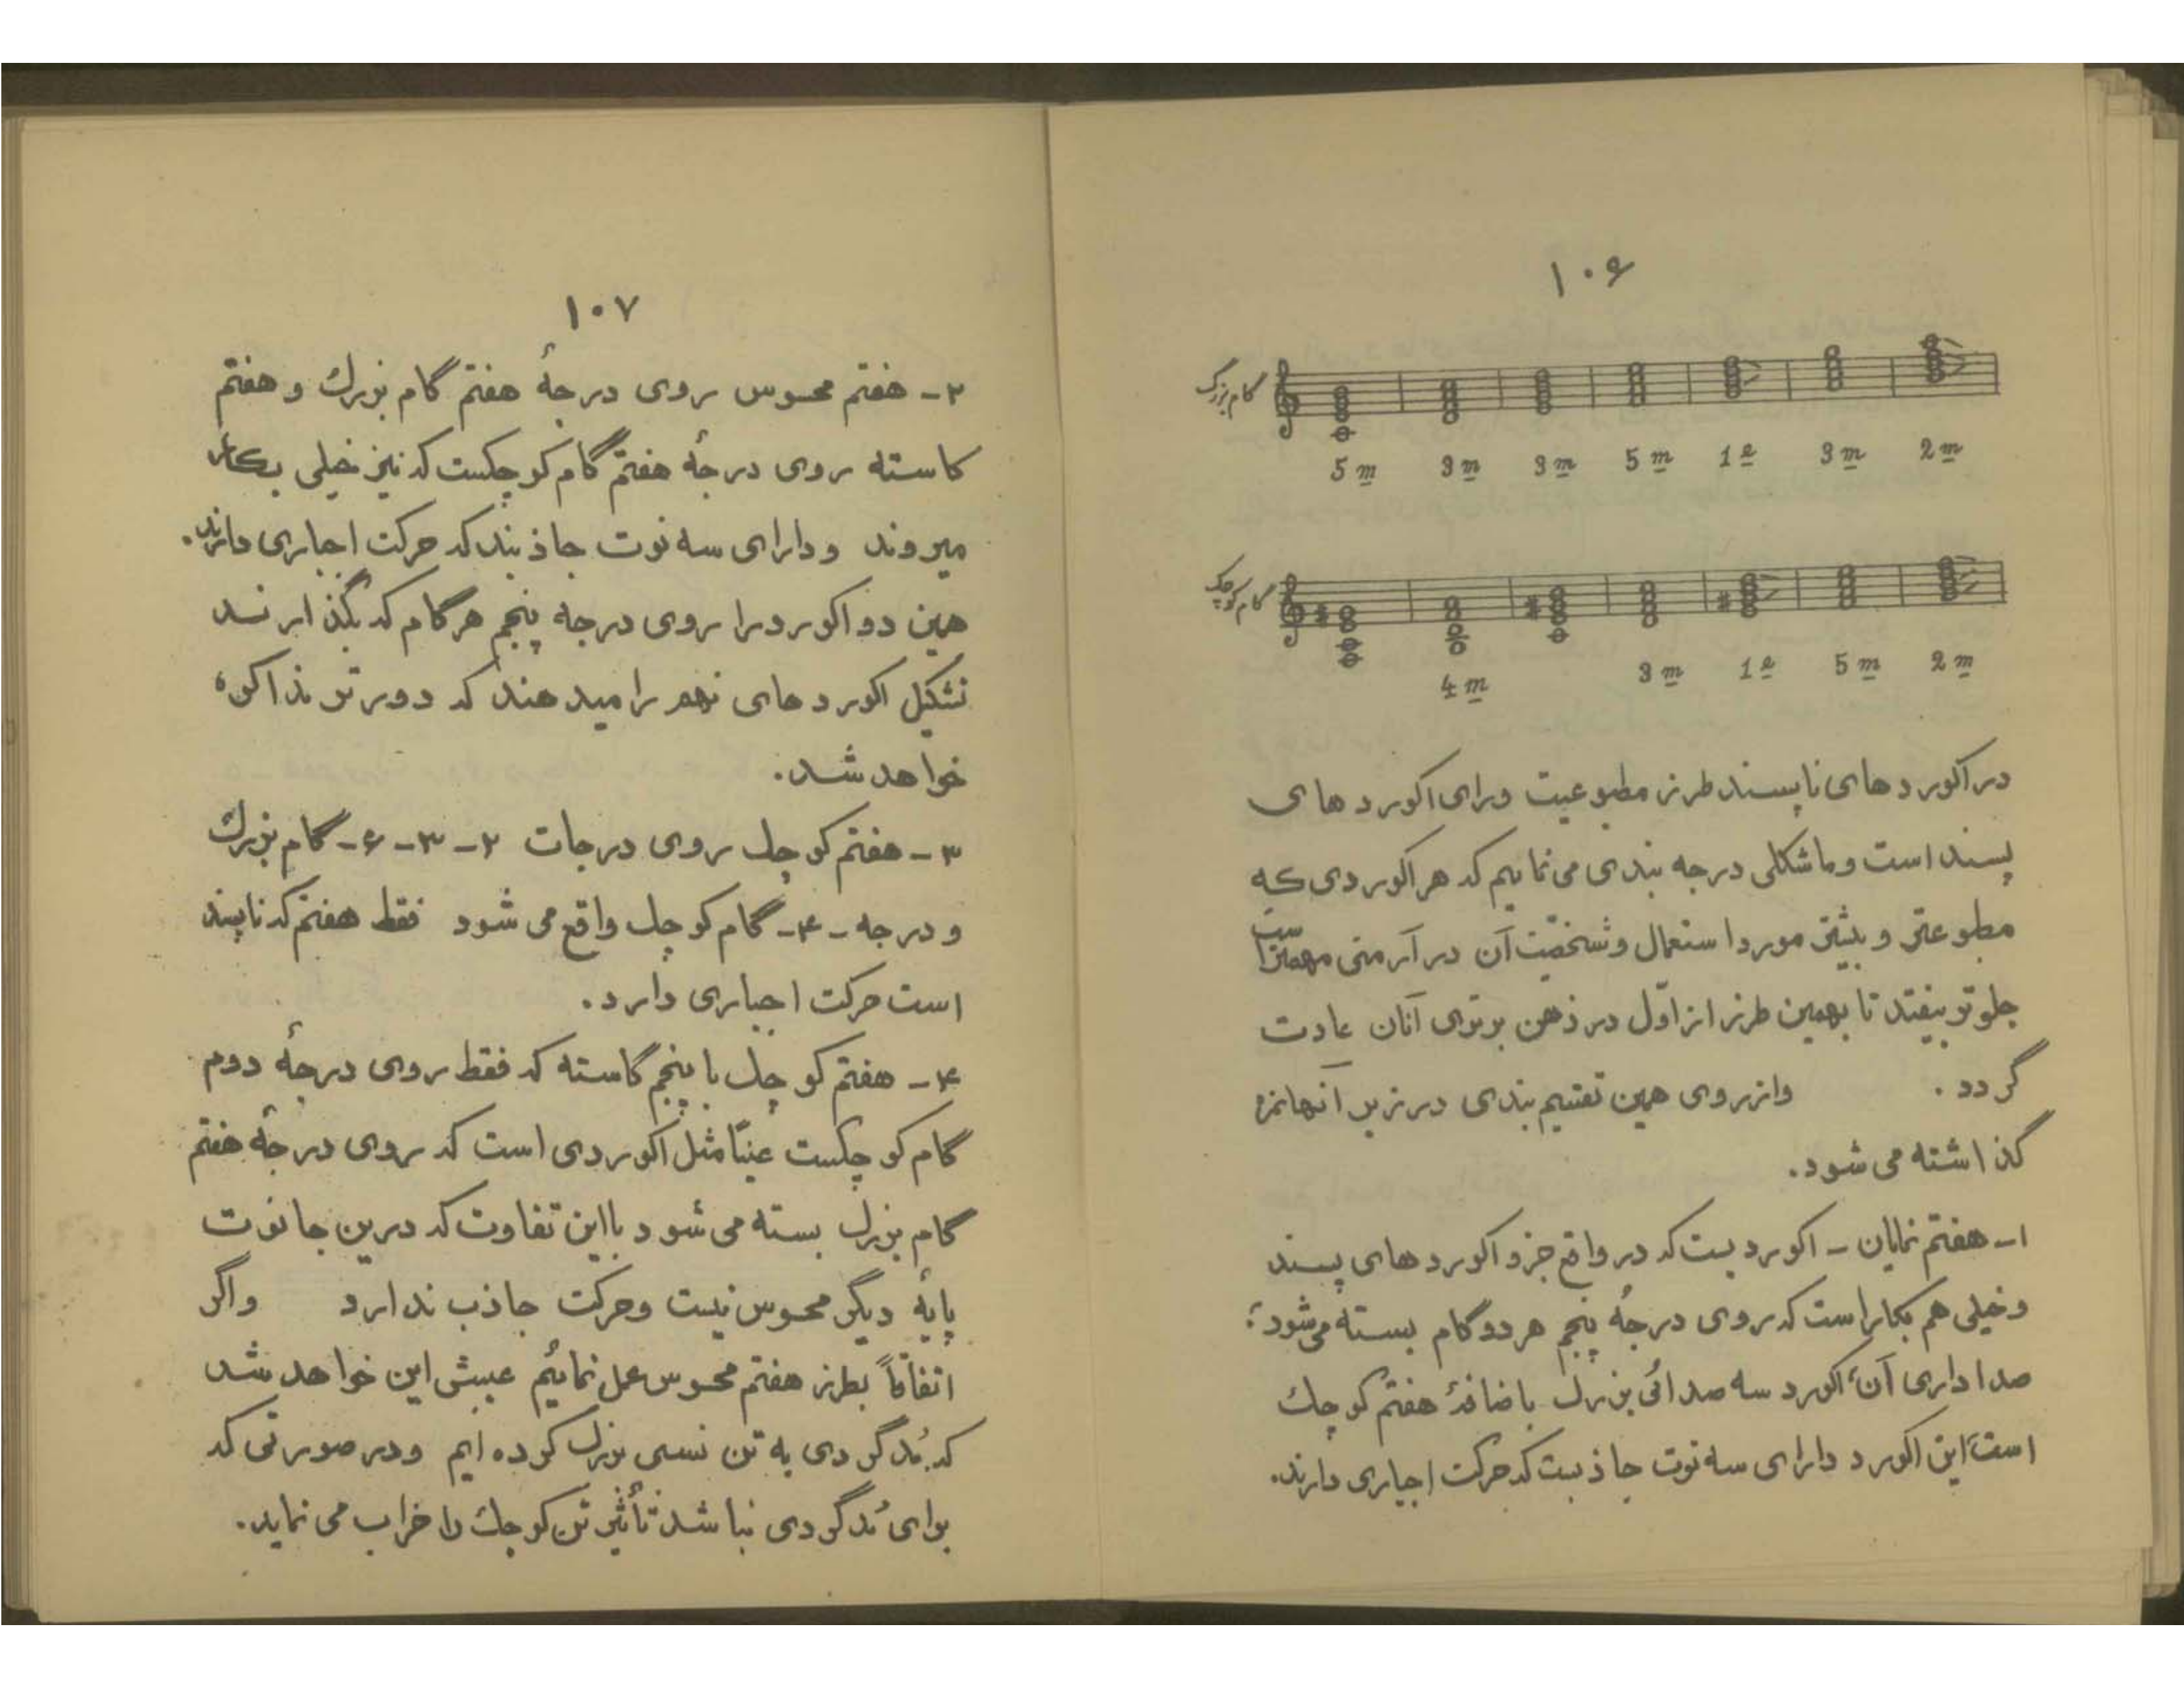 ۱۰۶
گام بزرگ
5 m 3 m 3 m 5 m 1 e 3 m 2 m
گام کوچک
4 m 3 m 1 e 5 m 2 m
در اکورد های ناپسند طرز مطبوعیت ورای اکورد های
پسند است و ما شکلی درجه بندی می نمایم که هر اکوردی که
مطبوعتر و بیشتر مورد استعمال و شخصیّت آن در آرمنی مهمتر است
جلوتر بیفتد تا بهمین طرز از اوّل در ذهن برتری آنان عادت
گردد . واز روی همین تقسیم بندی در زیر آنها نمره
گذاشته می شود.
۱- هفتم نمایان - اکوردیست که در واقع جزو اکورد های پسند
و خیلی هم بکار است که روی درجهٔ پنجم هر دو گام بسته می شود ؛
صدا داری آن، اکورد سه صدائی بزرگ باضافهٔ هفتم کوچک
است، این اکورد دارای سه نوت جاذبست که حرکت اجباری دارند.
۱۰۷
۲- هفتم محسوس روی درجهٔ هفتم گام بزرگ و هفتم
کاسته روی درجهٔ هفتم گام کوچکست که نیز خیلی بکار
میروند و دارای سه نوت جاذبند که حرکت اجباری دارند.
همین دو اکورد را روی درجه پنجم هر گام که بگذارند
تشکیل اکورد های نهم را میدهند که دورتر مذاکره
خواهد شد.
۳- هفتم کوچک روی درجات ۲-۳-۶- گام بزرگ
و درجه -۴- گام کوچک واقع می شود فقط هفتم که ناپسند
است حرکت اجباری دارد.
۴- هفتم کوچک با پنجم کاسته که فقط روی درجهٔ دوم
گام کوچکست عیناً مثل اکوردی است که روی درجهٔ هفتم
گام بزرگ بسته می شود با این تفاوت که درین جا نوت
پایهٔ دیگر محسوس نیست و حرکت جاذب ندارد واگر
اتفاقاً بطرز هفتم محسوس عمل نمائیم عیبش این خواهد شد
که مُدگردی به تن نسبی بزرگ کرده ایم ودر صورتی که
برای مُدگردی نباشد تأثیر تن کوچک را خراب می نماید.